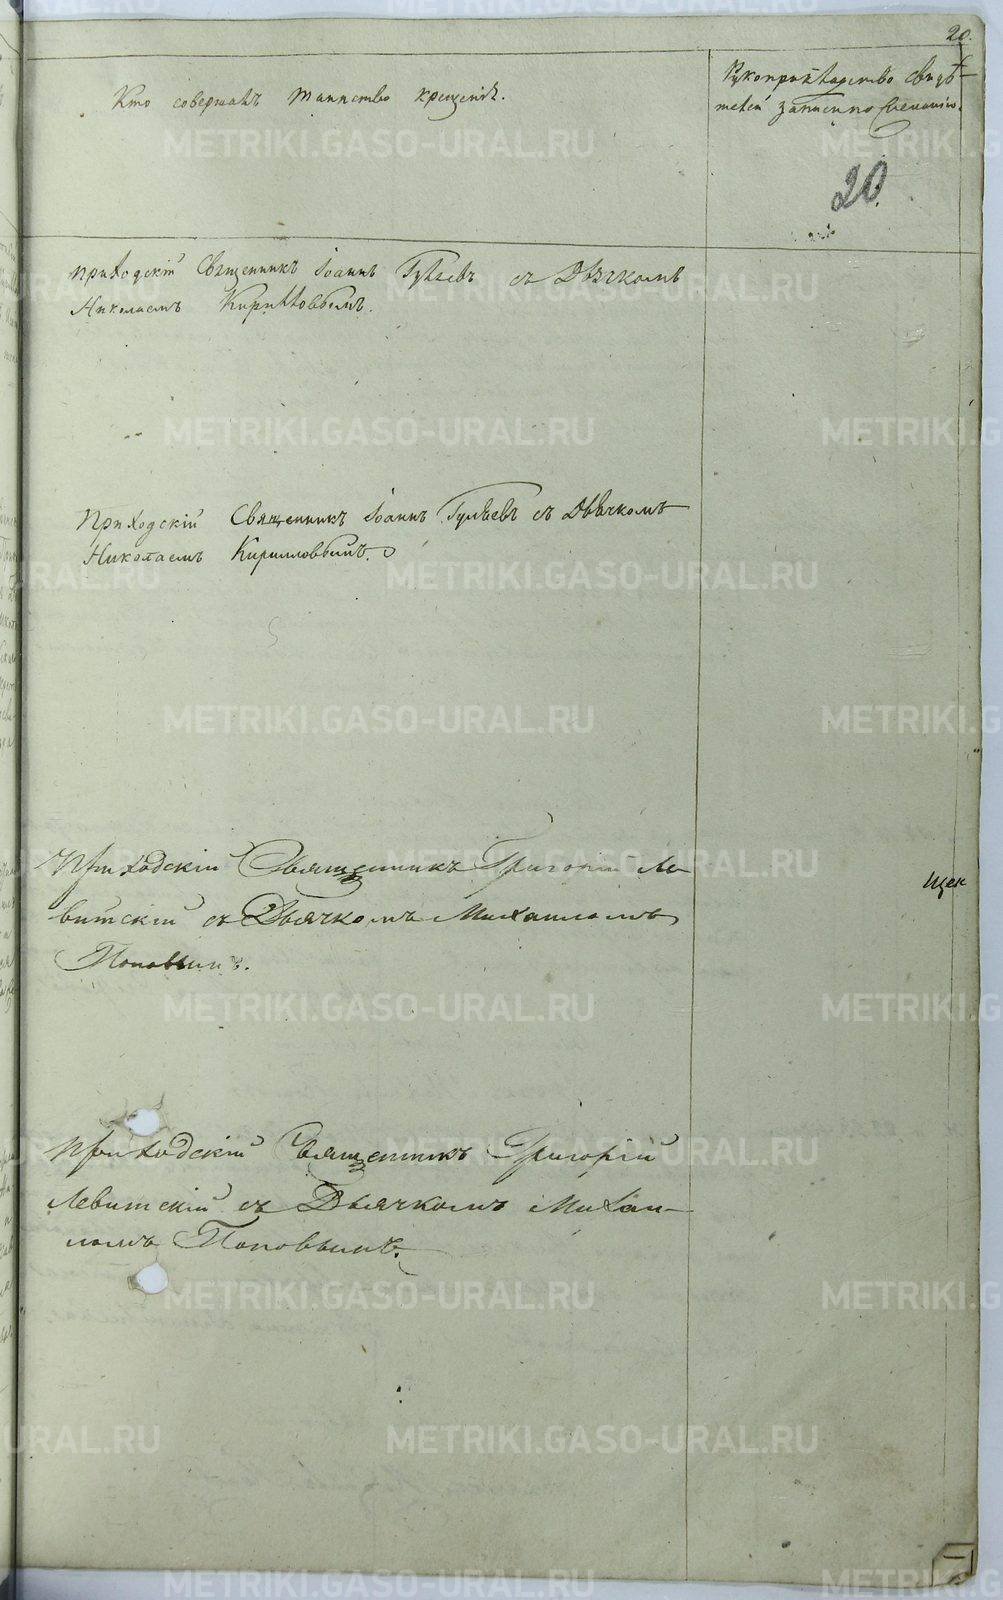 20.
Кто совершалъ таинство крещенія.
Рукоприкладство свидѣ-
телей записи по желанію.
20.
Приходскій Священникъ Іоаннъ Гуляевъ съ Дьячкомъ
Николаемъ Кирилловымъ.
Приходскій Священникъ Іоаннъ Гуляевъ съ Дьячкомъ
Николаемъ Кирилловымъ.
Приходскій Священникъ Григорій Ле-
витскій съ Дьячкомъ Михаиломъ
Поповымъ.
щек
Приходскій Священникъ Григорій
Левитскій съ Дьячкомъ Михаи-
ломъ Поповымъ.
METRIKI.GASO-URAL.RU